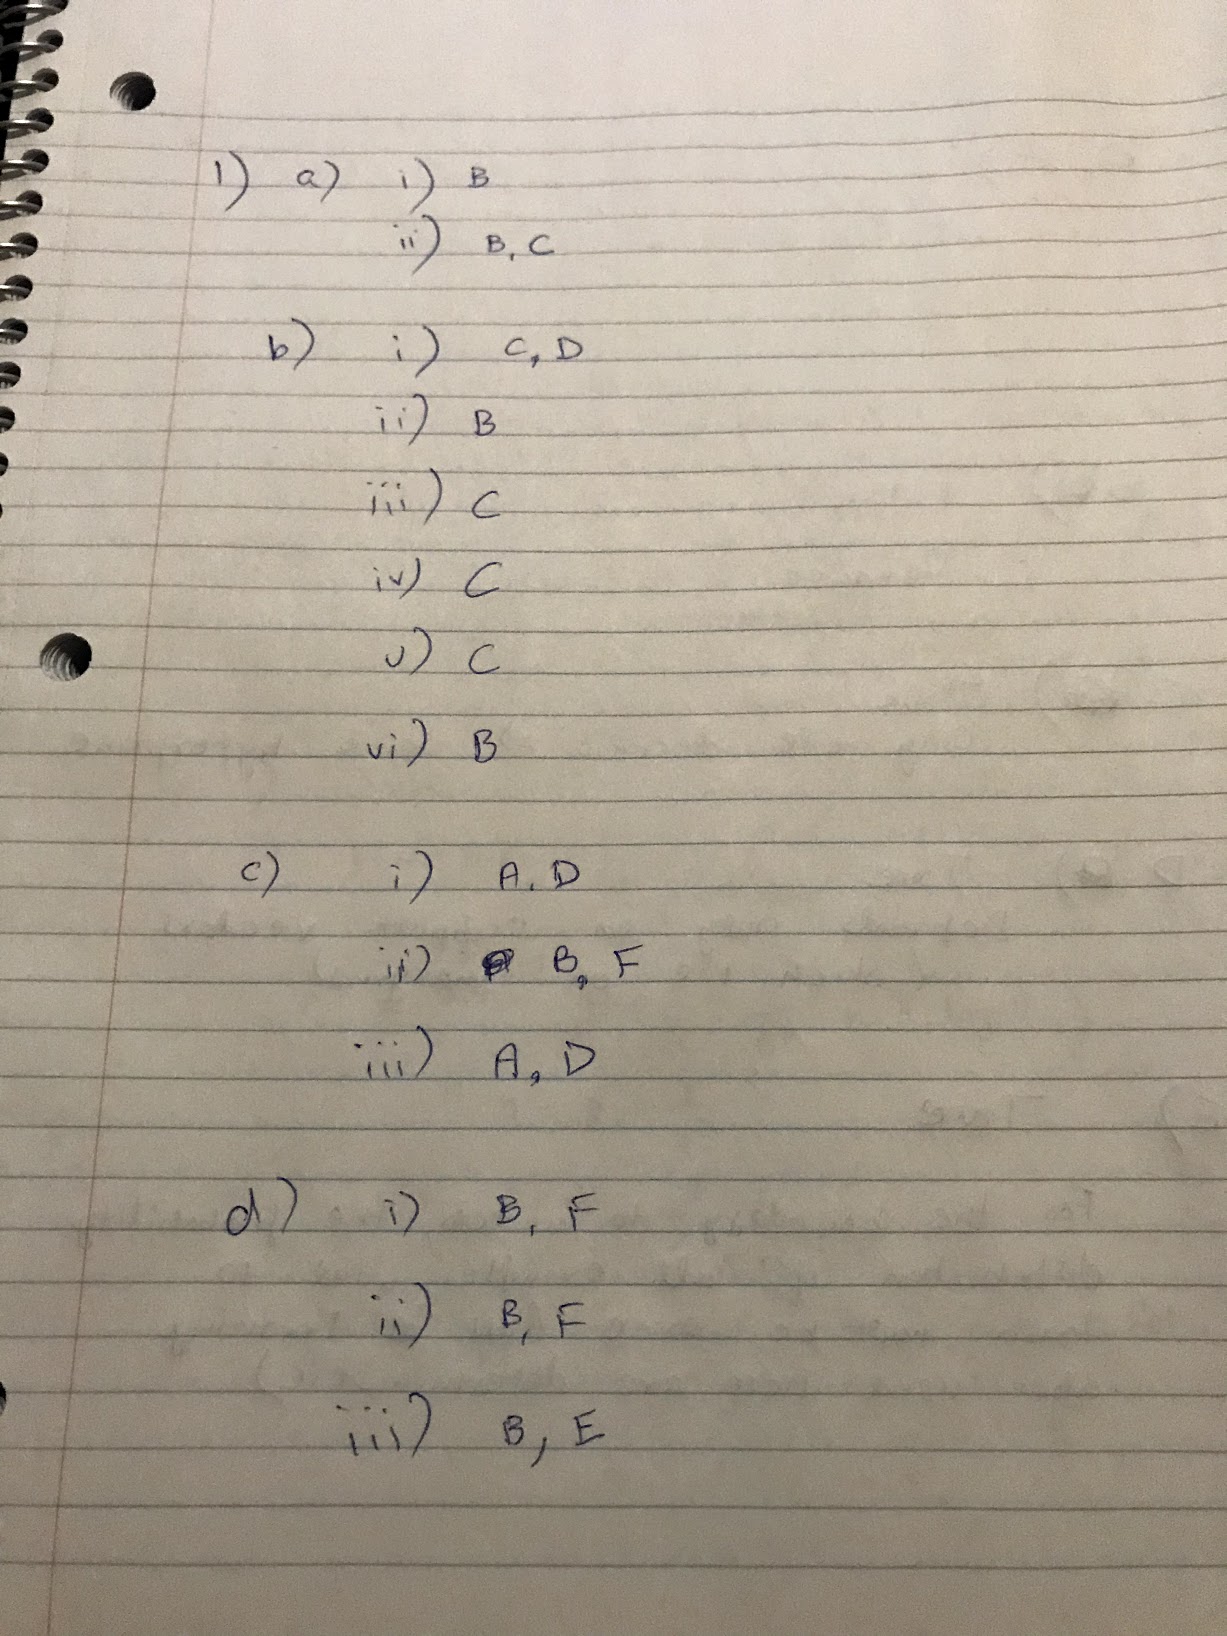 1) a) i) B
ii) B, C
b) i) C, D
ii) B
iii) C
iv) C
v) C
vi) B
c) i) A, D
ii) B, F
iii) A, D
d) i) B, F
ii) B, F
iii) B, E